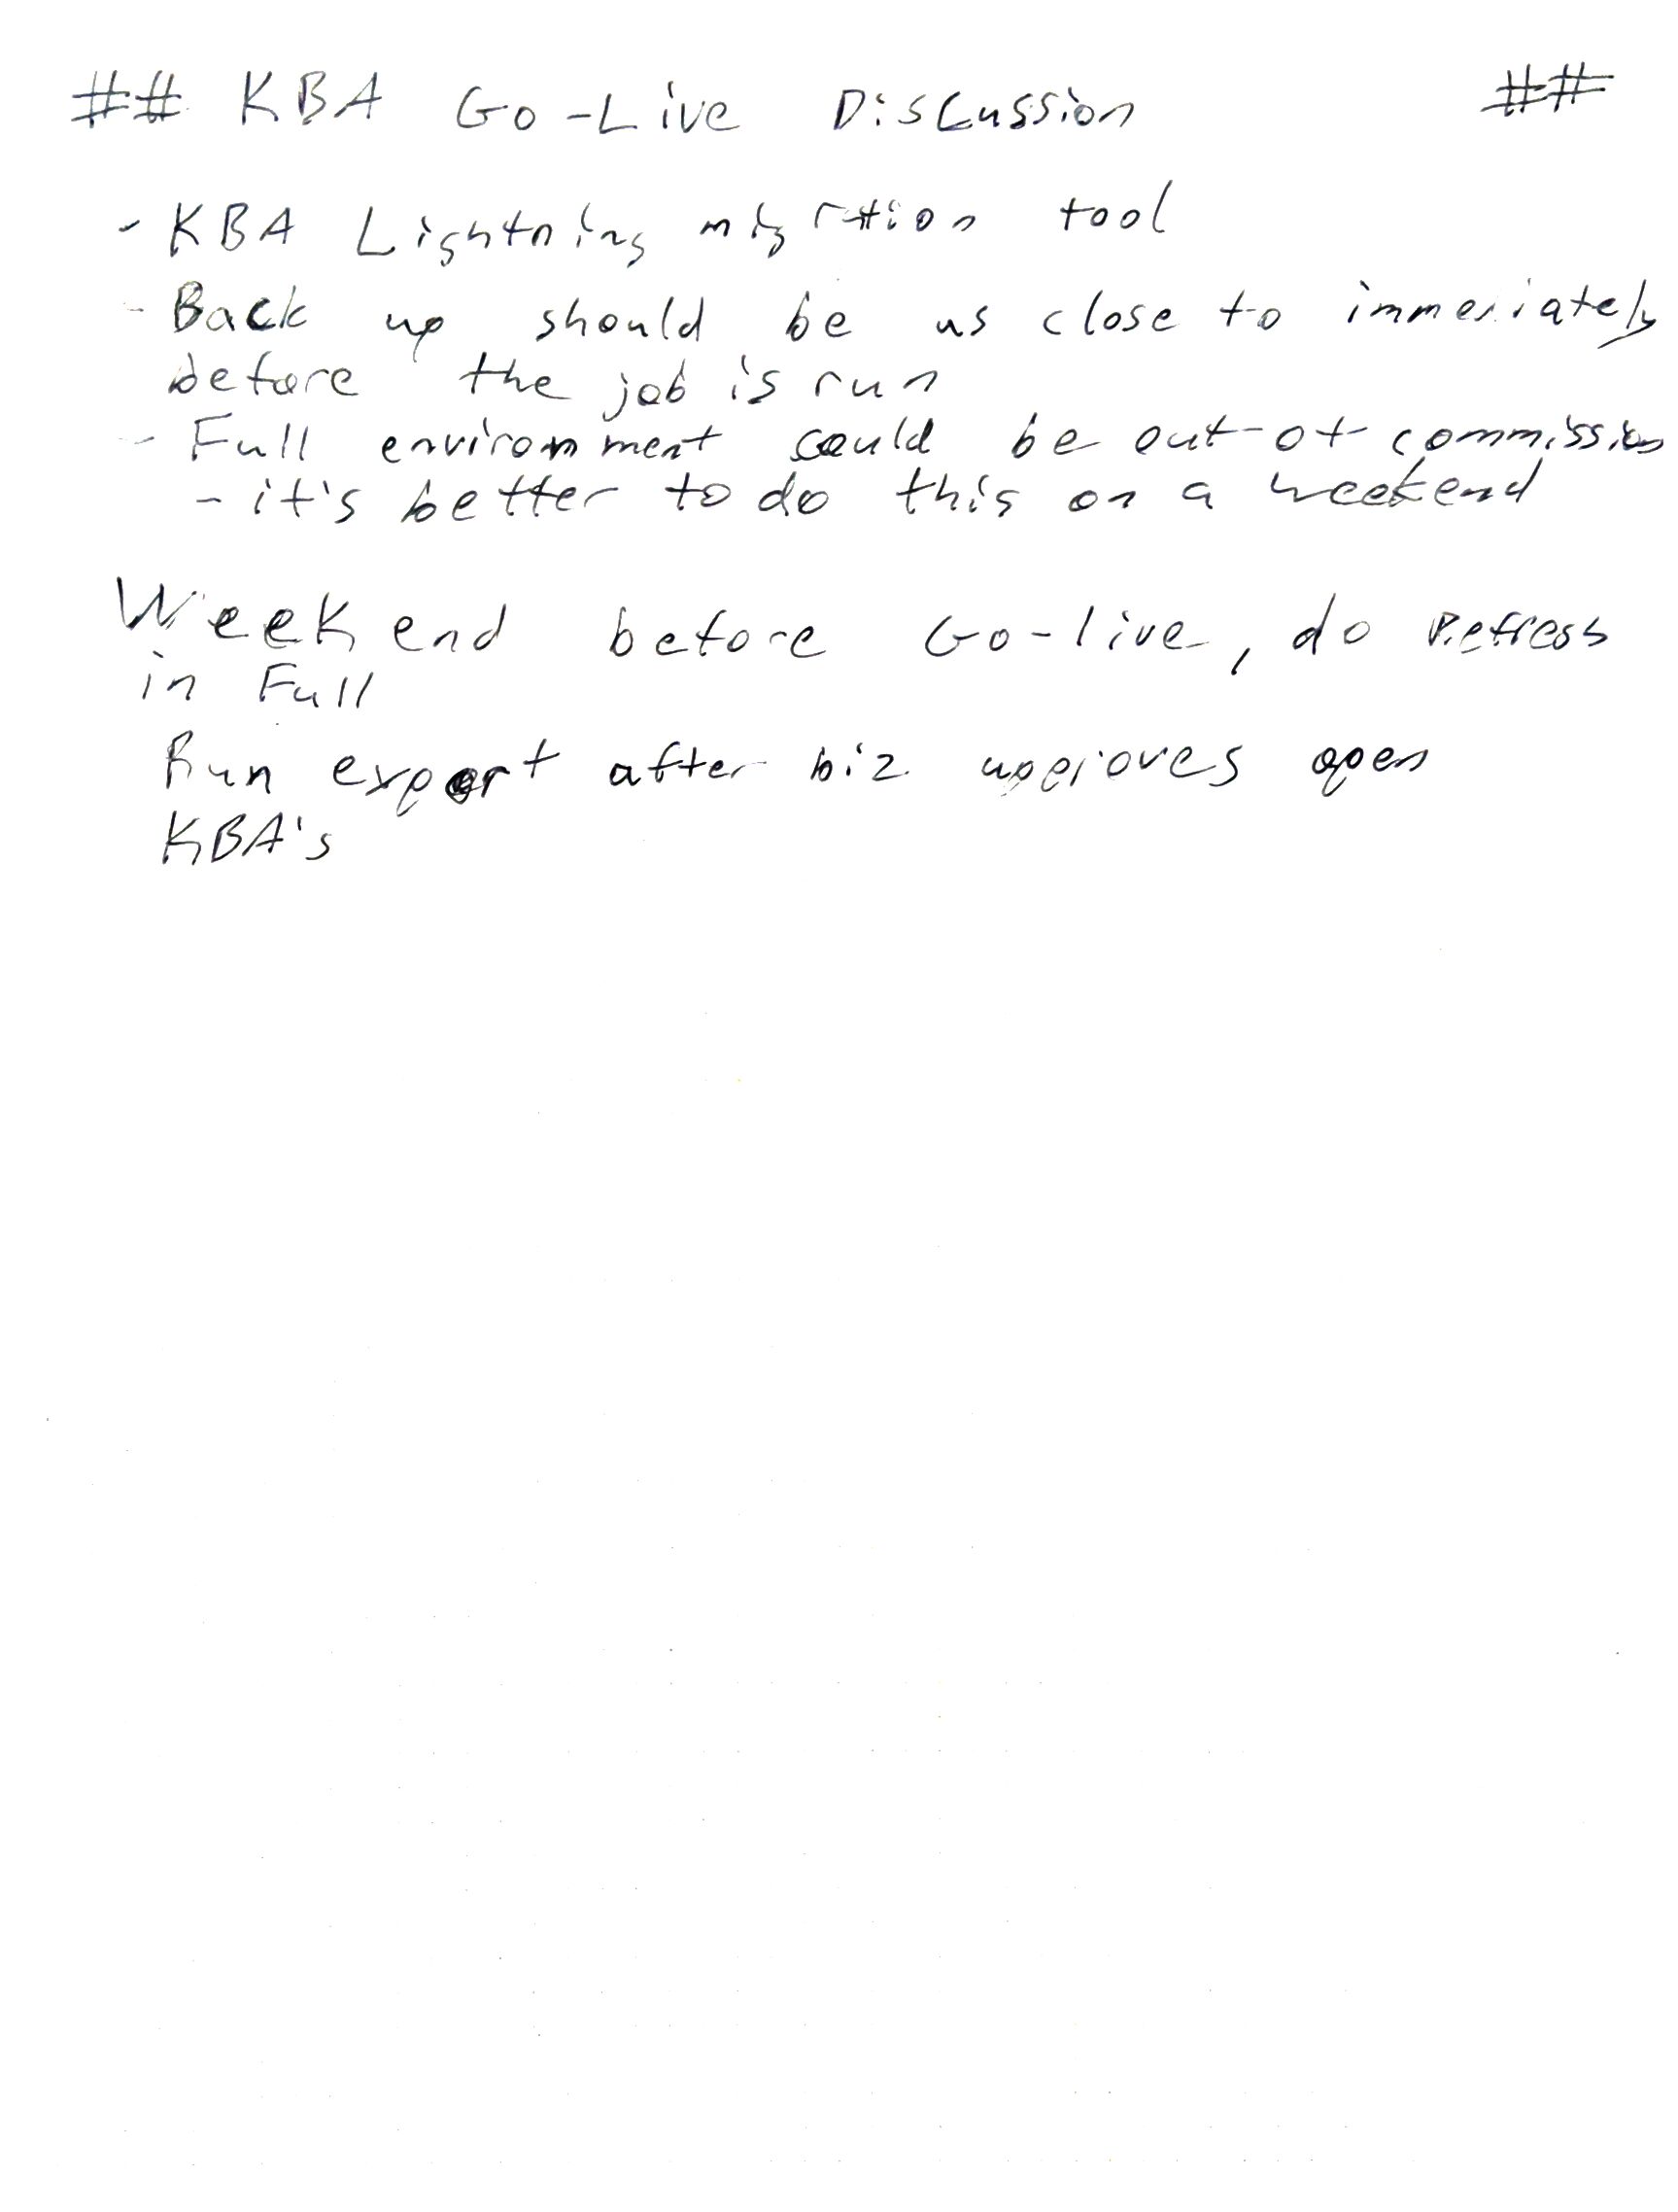 ## KBA Go-Live Discussion ##
- KBA Lightning migration tool
- Back up should be as close to immediately
before the job is run
- Full environment could be out-of-commission
- it's better to do this on a weekend
Weekend before Go-live, do Refresh
in Full
Run export after biz approves open
KBA's